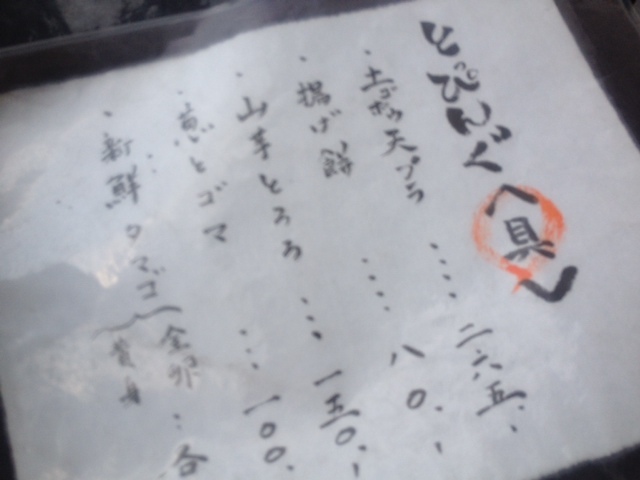 とっぴんぐ〈具〉
・土ゴボウ天プラ‥‥二六五、
・揚げ餅‥‥八〇、
・山芋とろろ…一五〇、
・恵とゴマ…一〇〇、
・新鮮タマゴ
全卵
黄身
‥各